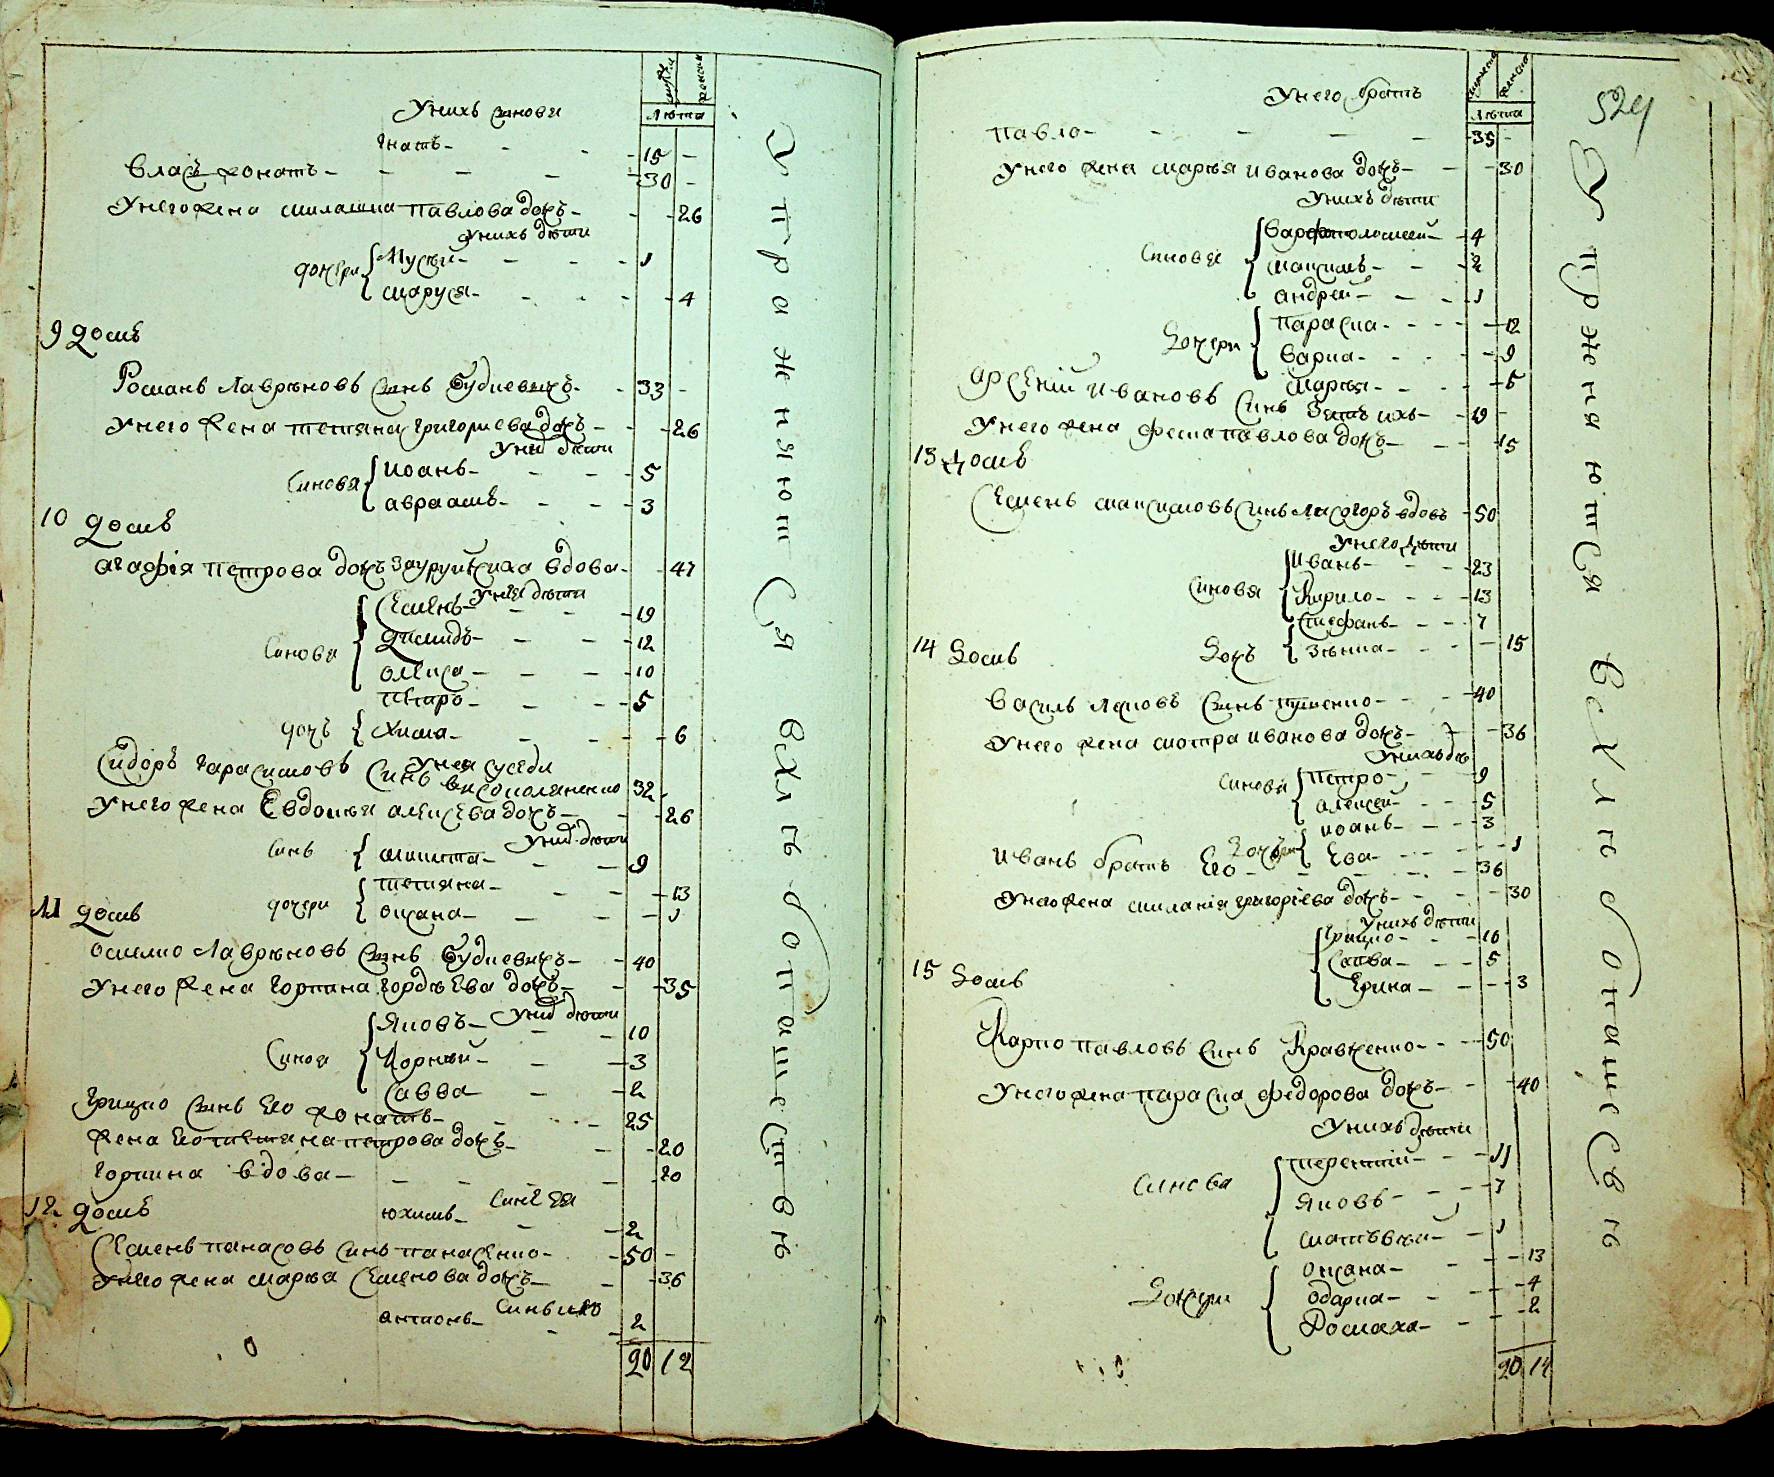 мужеска женска
Лѣта
У нихъ синови
Гнатъ - 15 -
Власъ жонатъ - 30 -
У него жена Милашка Павлова дочъ - 26
У нихъ дѣти
дочери Мусѣй - 1
Маруся - 4
9 домъ
Романъ Лаврѣновъ синъ Будневичъ - 33 -
У него жена Тетяна Григориева дочъ - 26
У них дѣти
Синовя Иоанъ - 5
Авраамъ - 3
10 домъ
Агафія Петрова дочъ вдова - 47
У нея дѣти
Синови Семенъ - 19
Димидъ - 12
Олекса - 10
Петро - 5
дочъ Хима - 6
У нея суседи
Сидоръ Гарасимовъ синъ Високоляненко 32
У него жена Евдокия Алексѣева дочъ - 26
У них дѣти
Синъ Микита - 9
дочери Тетяна - 13
Оксана - 1
11 домъ
Осипко Лаврѣновъ синъ Будневичъ - 40
У него жена Горпина Гордѣева дочъ - 35
У них дѣти
Синовя Яковъ - 10
Корнѣй - 3
Савва - 2
Грицко синъ его жонатъ - 25
Жена его Петрова дочъ - 20
Горпина вдова - 20
Синъ ея
Юхимъ - 2
12 домъ
Семенъ Панасовъ синъ Панасенко - 50 -
У него жена Марѣя Семенова дочъ - 36
Синъ ихъ
Антонъ - 2
20 12
Упражняют ся в хлѣбопашествѣ
524
мужеска женска
Лѣта
У него братъ
Павло - 35 -
У него жена Марѣя Иванова дочъ - 30
У нихъ дѣти
Синовя Варфоломѣй - 4
Максимъ - 2
Андрей - 1
Дочери Параска - 12
Варка - 9
Марѣя - 5
Арсеній Ивановъ синъ зять ихъ - 19 -
У него жена Феска Павлова дочъ - 15
13 домъ
Семенъ Максимовъ синъ Лисогоръ вдовъ - 50
У него дѣти
Синовя Иванъ - 23
Кирило - 13
Стефанъ - 7
Дочъ Зѣнка - 15
14 Домъ
Василь Лековъ синъ - 40
У него жена Мотра Иванова дочъ - 36
У нихъ дѣ
Синовя Петро - 9
Алексей - 5
Иоанъ - 3
Дочъ Ева - 1
Иванъ братъ его - 36
У него жена Миланія Григоріева дочъ - 30
У нихъ дѣти
Грицко - 16
Савва - 5
Ерина - 3
15 Домъ
Карпо Павловъ синъ Кравченко - 50
У него жена Параска Федорова дочъ - 40
У нихъ дѣти
Синовя Терентій - 11
Яковъ - 7
Матѣвѣй - 1
Дочери Оксана - 13
Одарка - 4
Домаха - 2
20 14
Упржняются в хлѣбопашесвѣ